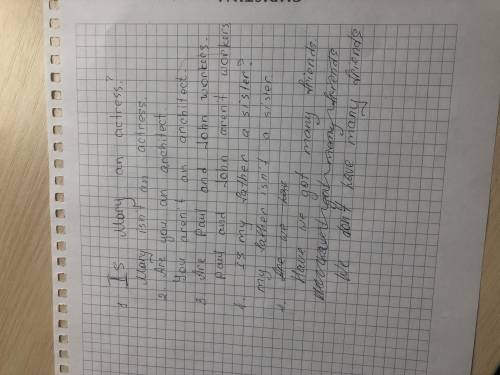 1 Is Mary an actress?
Mary isn't an actress.
2. Are you an architect
You aren't an architect.
3 Are Paul and John workers.
Paul and John aren't workers
4. Is my father a sister?
my father isn't a sister
4. we have
Have we got many friends
many friends
We don't have many friends